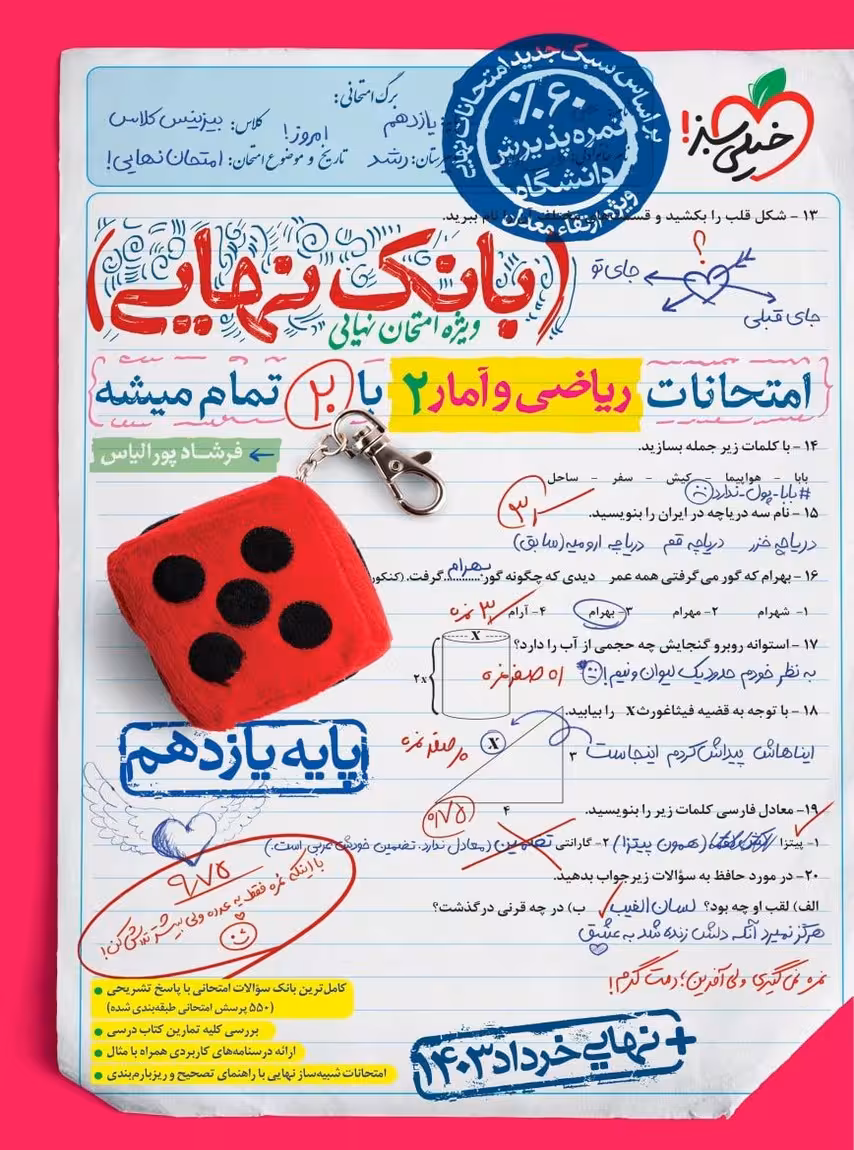 خیلی سبز!
بر اساس سبک جدید امتحانات نهایی
۶۰٪
نمره پذیرش
دانشگاه
ویژه ارتقاء معدل
برگ امتحانی:
یازدهم
کلاس: بیزینس کلاس
رشد
تاریخ و موضوع امتحان: امتحان نهایی!
امروز!
۱۳ - شکل قلب را بکشید و قسمت‌های مختلف آن را نام ببرید.
؟
جای تو
جای قبلی
(بانک نهایی)
ویژه امتحان نهایی
امتحانات ریاضی و آمار ۲ با ۲۰ تمام میشه
فرشاد پورالیاس
۱۴ - با کلمات زیر جمله بسازید.
بابا - هواپیما - کیش - سفر - ساحل
#بابا-پول-ندارد
۱۵ - نام سه دریاچه در ایران را بنویسید.
دریاچه خزر دریاچه قم دریاچه ارومیه (سابق)
۱۶ - بهرام که گور می‌گرفتی همه عمر دیدی که چگونه گور بهرام گرفت. (کنکور
۱- شهرام ۲- مهرام ۳- بهرام ۴- آرام
۳ نمره
۱۷ - استوانه روبرو گنجایش چه حجمی از آب را دارد؟
x
۲x
به نظر خودم حدود یک لیوان و نیم!
صفر نمره
۱۸ - با توجه به قضیه فیثاغورث X را بیابید.
ایناهاش پیداش کردم اینجاست
X
۳
۴
صفر نمره
پایه یازدهم
۱۹- معادل فارسی کلمات زیر را بنویسید.
۱- پیتزا (همون پیتزا) ۲- گارانتی تضمین (معادل ندارد. تضمین خودش عربی است.)
۲۰- در مورد حافظ به سؤالات زیر جواب بدهید.
الف) لقب او چه بود؟ لسان الغیب ب) در چه قرنی درگذشت؟
هرگز نمیرد آنکه دلش زنده شد به عشق
نمره نمی‌گیری ولی آفرین؛ دمت گرم!
۹/۷۵
با اینکه نمره فقط یه عدده ولی بیشتر تلاش کن!
کامل‌ترین بانک سؤالات امتحانی با پاسخ تشریحی
(۵۵۰ پرسش امتحانی طبقه‌بندی شده)
بررسی کلیه تمارین کتاب درسی
ارائه درسنامه‌های کاربردی همراه با مثال
امتحانات شبیه‌ساز نهایی با راهنمای تصحیح و ریزبارم‌بندی
+ نهایی خرداد ۱۴۰۳